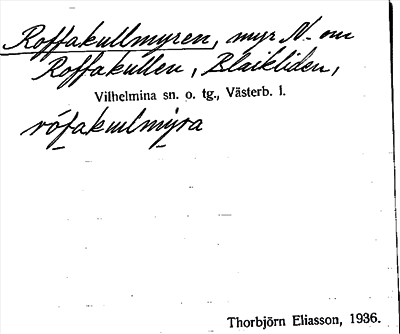 Roffakullmyren, myr N. om
Roffakullen, Blaikliden,
Vilhelmina sn. o. tg., Västerb. l.
rófakulmyra
Thorbjörn Eliasson, 1936.